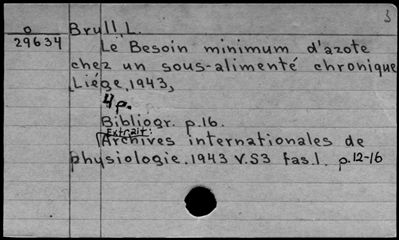 3
o
29634
Brull, L.
Le Besoin minimum d'azote
chez un sous-alimenté chronique
Liége, 1943,
4 p.
Bibliogr. p.16.
Extrait:
Archives internationales de
physiologie. 1943 V.53 fas.1. p.12-16